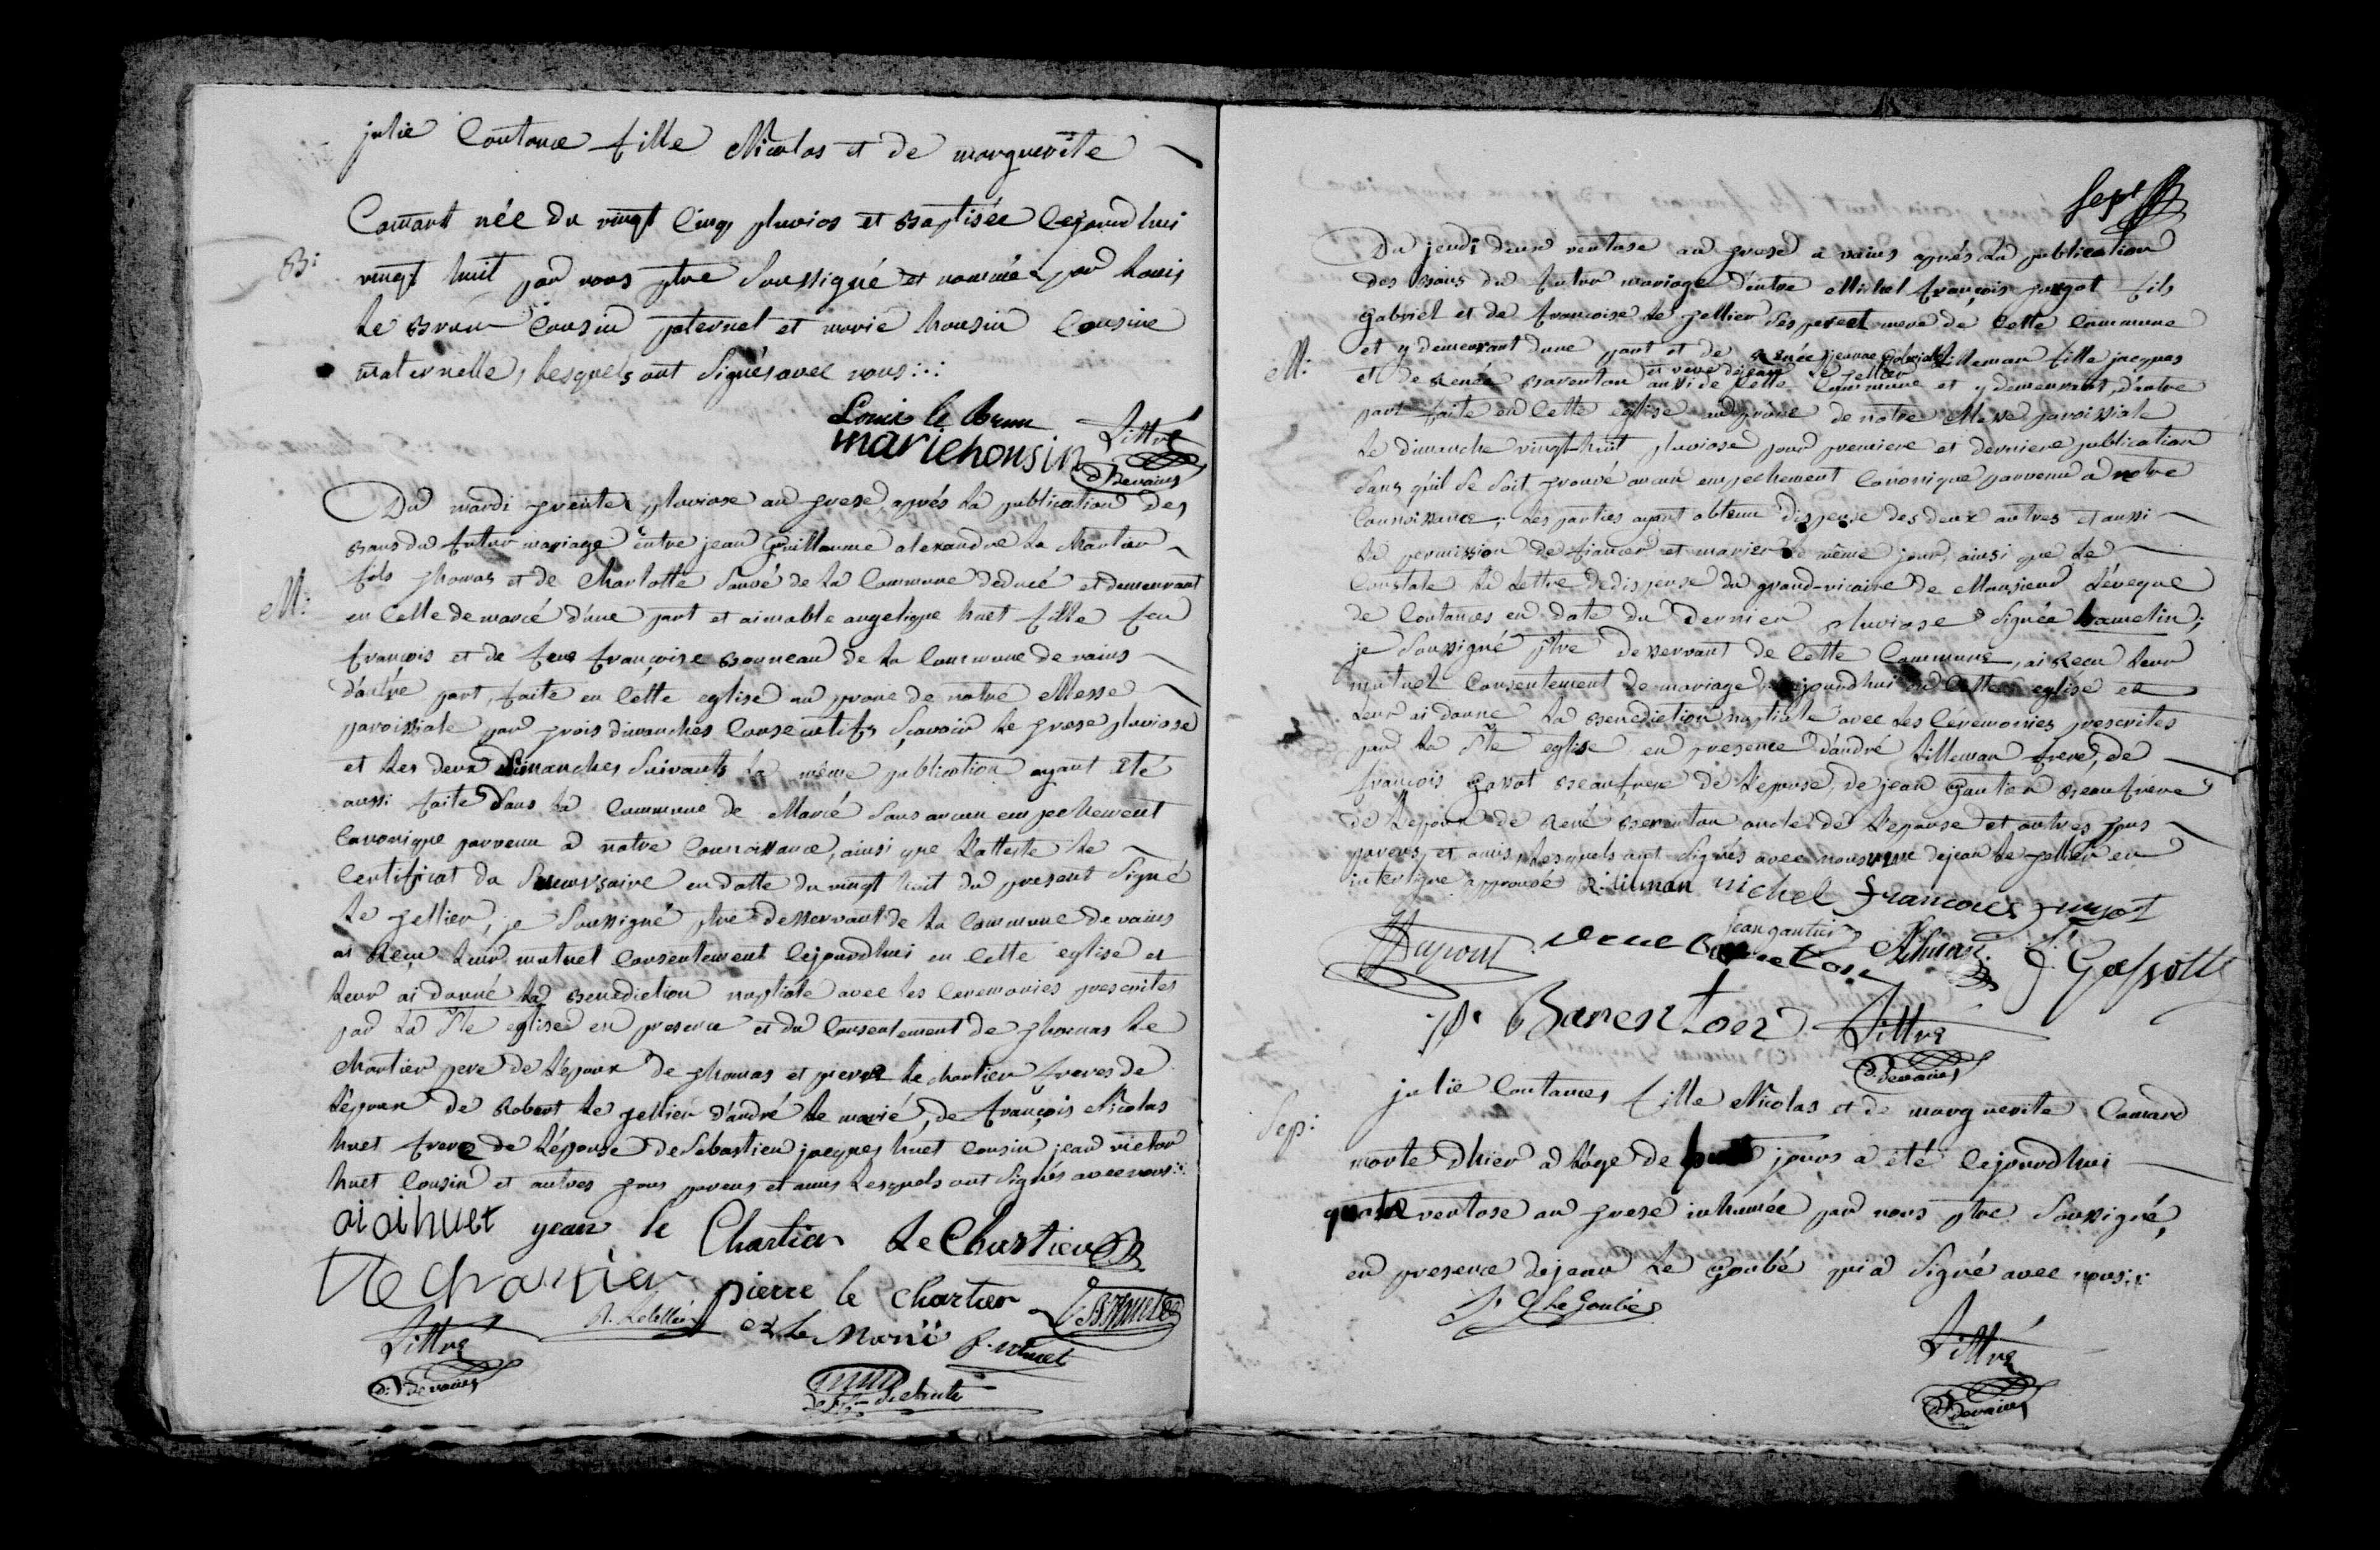 julie Coutance fille Nicolas et de marguerite
Comard née du vingt Cinq pluvios et Baptisée Cejourdhui
B: vingt huit par nous ptre Soussigné et nommée par Louis
Le Brun Cousin paternel et marie housin Cousine
maternelle, Lesquels ont Signés avec nous
Louis le brun Littré
marie housin
d. Devains
Du mardi trente pluviose an trese, après La publication des
Bans du futur mariage entre jean Guillaume alexandre Le Chartier
fils thomas et de Charlotte Sauvé de La Commune deducé et demeurant
M: en Celle de marcé d'une part et aimable angelique huet fille feu
françois et de feue françoise Bonneau de La Commune de vains
d'autre part, faite en Cette eglise au prone de notre Messe
paroissiale par trois dimanches Consecutifs Sçavoir Le trese pluviose
et Les deux Dimanches Suivants La même publication ayant Eté
aussi faite Dans La Commune de Marcé Sans aucun empechement
Canonique parvenu à notre Connoissance, ainsi que L'atteste Le
Certificat du Succursaire en datte du vingt huit du present Signé
Le tellier, je Soussigné ptre desservant de La Commune de vains
ai Reçu Leur mutuel Consentement Cejourdhui en Cette eglise et
Leur ai donné La Benediction nuptiale avec les Ceremonies prescrites
par La Ste eglise en presence et du Consentement de thomas Le
Chartier pere de L'époux de thomas et pierre Le chartier freres de
L'époux de Robert Le tellier d'andré Le marié, de françois Nicolas
huet frere de L'épouse de Sebastien jacques huet Cousin jean victor
huet Cousin et autres tous parens et amis Lesquels ont Signés avec nous
a i a i huet jean le Chartier Le Chartier
Le chartier pierre le chartier
Littré R. Letellier Le Marié f. n huet
d. Devains
Sept
Du jeudi deux ventose an trese à vains après La publication
des Bans du futur mariage d'entre Michel françois turgot fils
gabriel et de françoise Le tellier Ses pere et mere de Cette Commune
et y demeurant d'une part et de Renée jeanne Gabrielle Lilleman fille jacques
en veuve dejean Le tellier
M: et de Renée Barenton aussi de Cette Commune et y demeurant, d'autre
part faite en Cette eglise au prône de notre Messe paroissiale
Le dimanche vingt-huit pluviose pour premiere et derniere publication
Sans qu'il Se Soit trouvé aucun empechement Canonique parvenu à notre
Connoissance; Les parties ayant obtenu Dispense des deux autres et aussi
La permission de fiancer et marier Le même jour, ainsi que Le
Constate La Lettre de dispense du grand-vicaire de Monsieur L'éveque
de Coutances en date du Dernier pluviose Signée hamelin;
je Soussigné ptre desservant de Cette Commune, ai Recu Leur
mutuel Consentement de mariage Cejourdhui en Cette eglise et
Leur ai donné La Benediction nuptiale avec Les Céremonies prescrites
par La Ste eglise en presence d'andré Lilleman frere, de
françois Gavot Beaufrere de L'epouse, de jean Gautier Beaufrère
de L'epoux de René Barenton oncle de L'epouse et autres tous
parens, et amis, Lesquels ont Signés avec nous veuve dejean Le tellier en
interligne approuvé R. lilman michel françois turgot
Dupont rene Barenton jean gautier
Barenton Littré
d. Devains
julie Coutances fille Nicolas et de marguerite Comard
Sep: morte d'hier à L'âge de huit jours a été Cejourdhui
quatre ventose an trese inhumée par nous ptre Soussigné,
en presence dejean Le Goubé qui a Signé avec nous
J. G Le Goubé
Littré
d. Devains